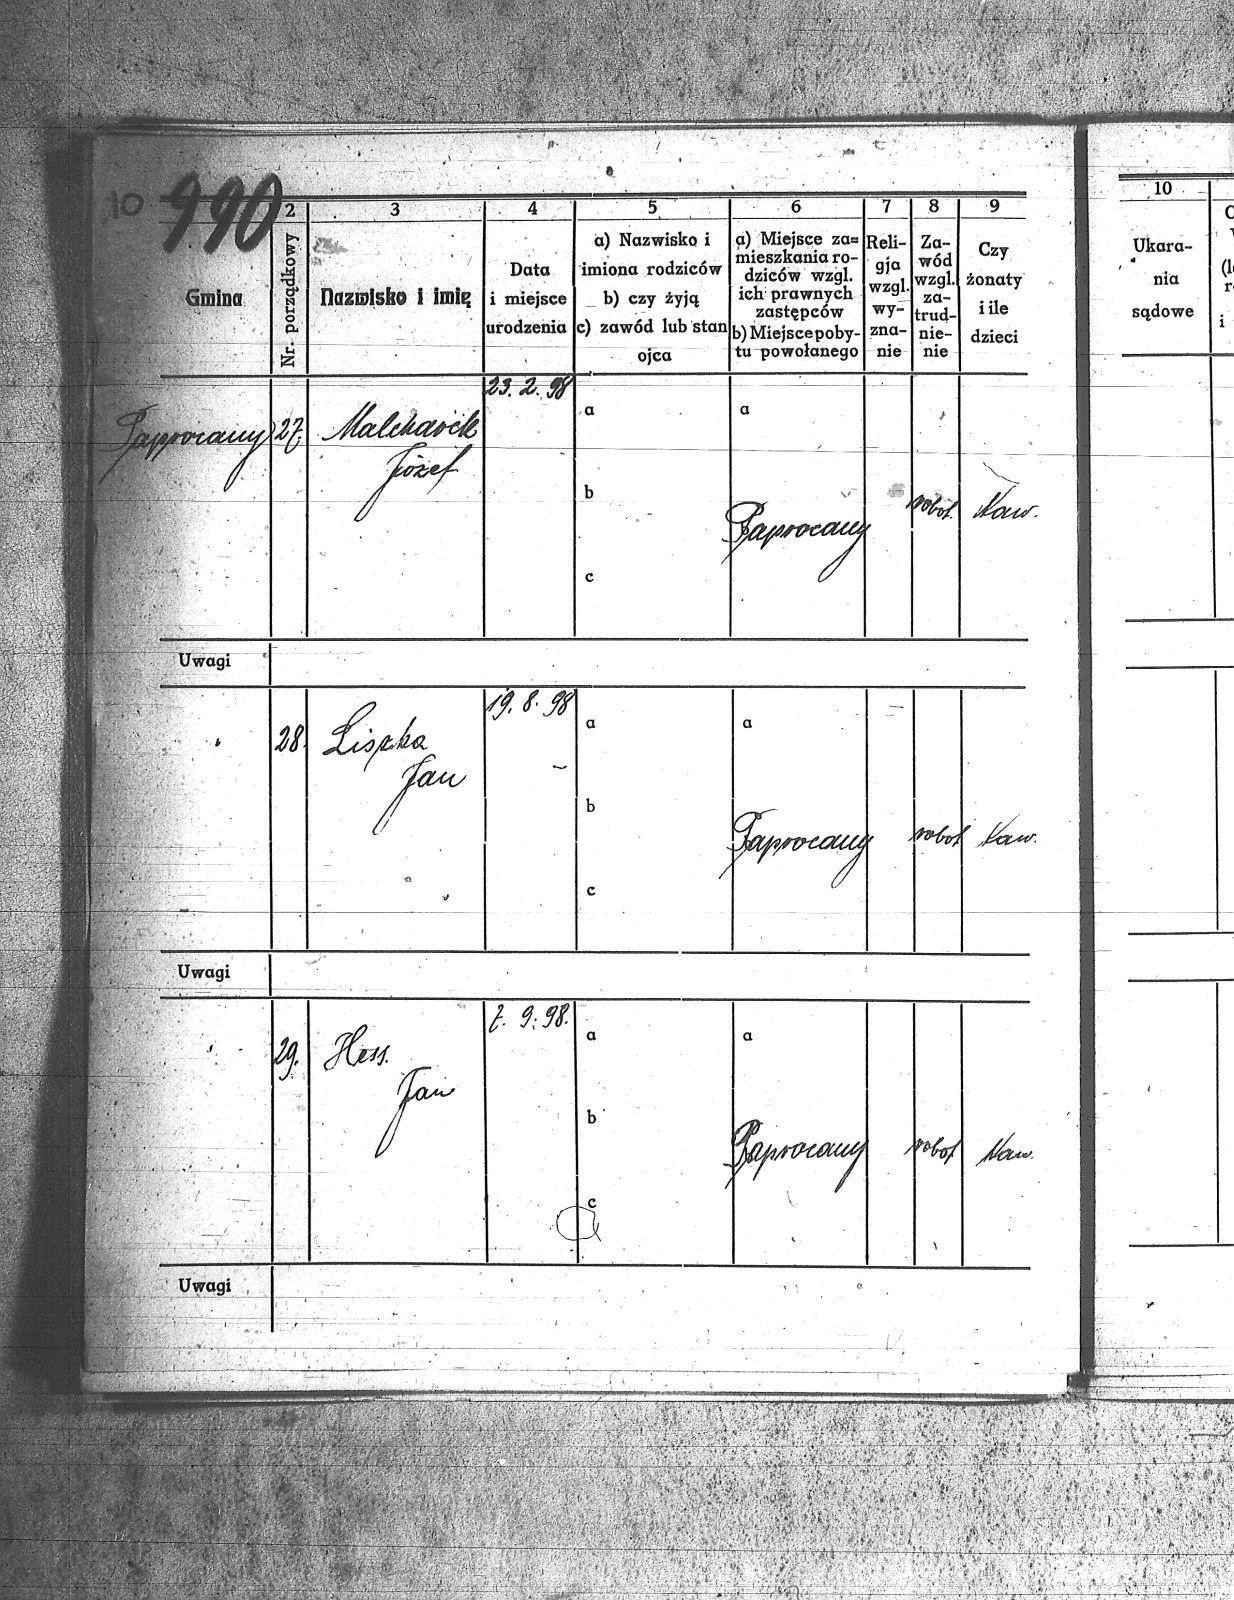 10 990
2
3
4
5
6
7
8
9
Gmina
Nr. porządkowy
Nazwisko i imię
Data
i miejsce
urodzenia
a) Nazwisko i
imiona rodziców
b) czy żyją
c) zawód lub stan
ojca
a) Miejsce za=
mieszkania ro-
dziców wzgl.
ich prawnych
zastępców
b) Miejsce poby-
tu powołanego
Reli-
gja
wzgl.
wy-
zna-
nie
Za-
wód
wzgl.
za-
trud-
nie-
nie
Czy
żonaty
i ile
dzieci
10
Ukara-
nia
sądowe
Paprocany
27.
Malcharek
Józef
23. 2. 98
a
b
c
a
Paprocany
robot.
Kaw.
Uwagi
28.
Liszka
Jan
19. 8. 98
a
b
c
a
Paprocany
robot
Kaw.
Uwagi
29.
Hess.
Jan
7. 9. 98.
a
b
c
a
Paprocany
robot
Kaw.
Uwagi